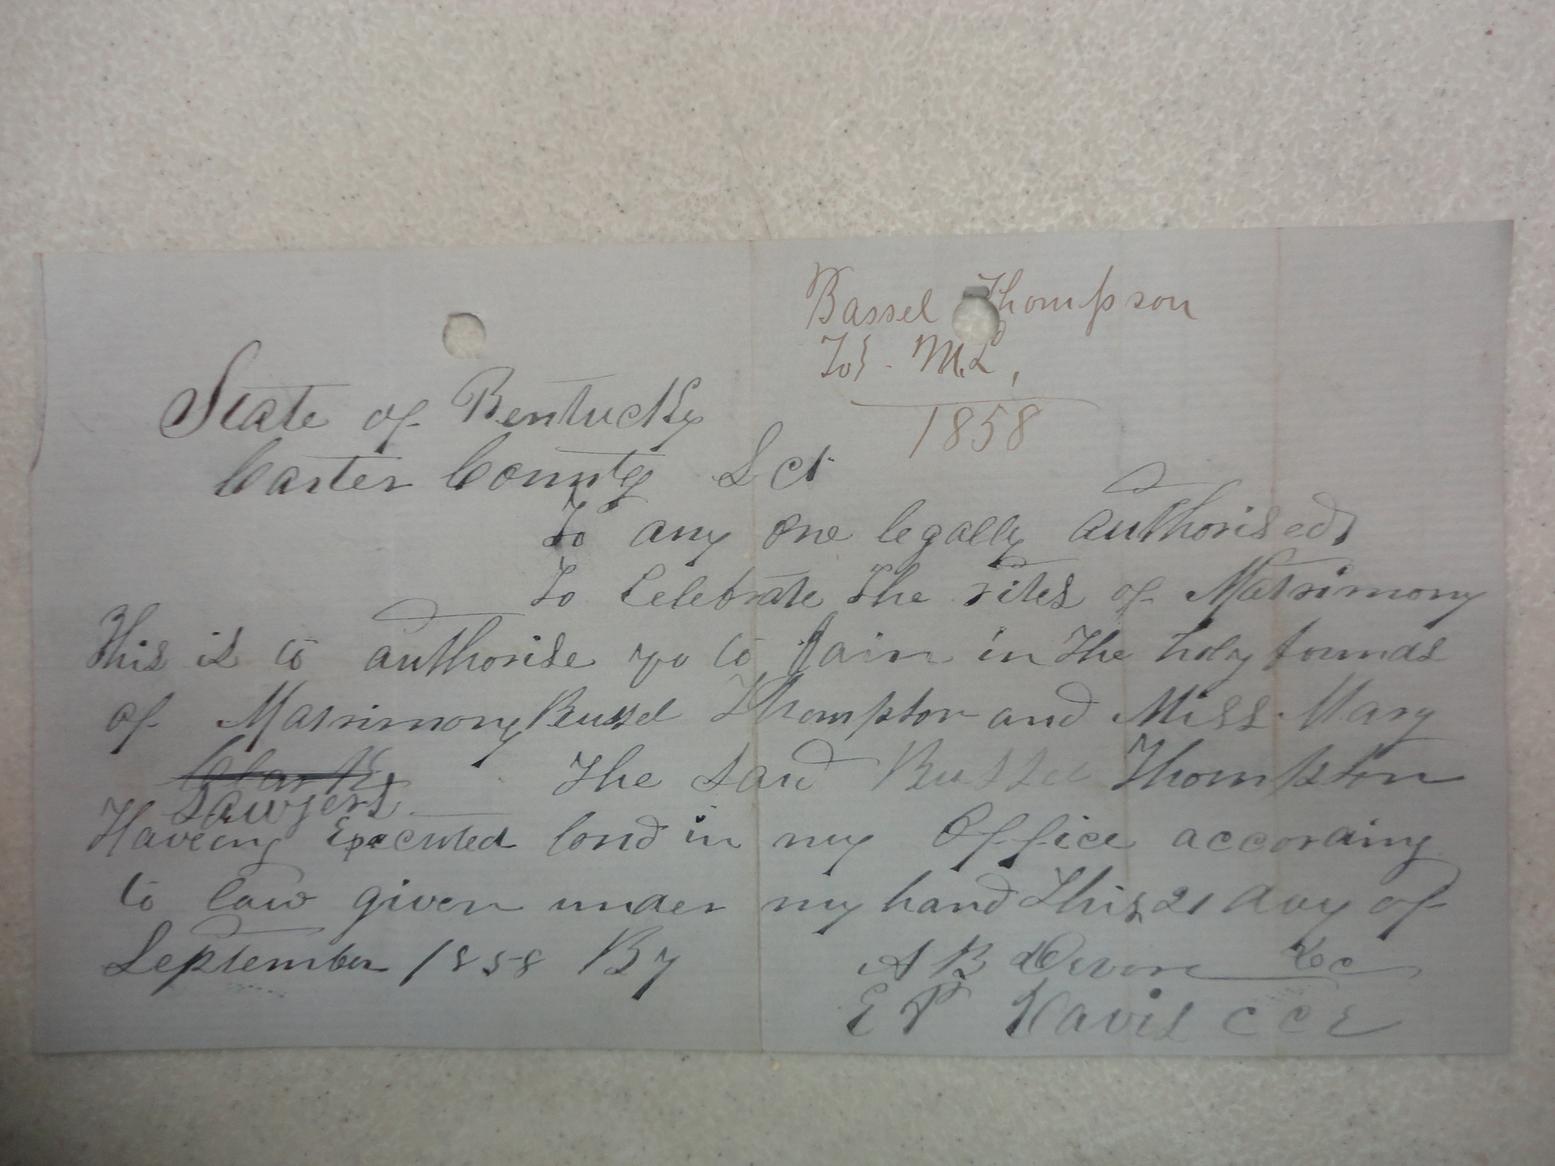 Bassel Thompson
To} - M.L,
1858
State of Kentucky
Carter County Sct
To any one legally authorised,
To Celebrate The rites of Matrimony
This is to authorise yo to Join in The holy bounds
of Matrimony Bussel Thompson and Miss Mary
Clark,
Sawyers The said Bussel Thompson
Haveing Executed bond in my Office according
to law given under my hand This 21 day of
September 1858 By A B
E P Davis C C C